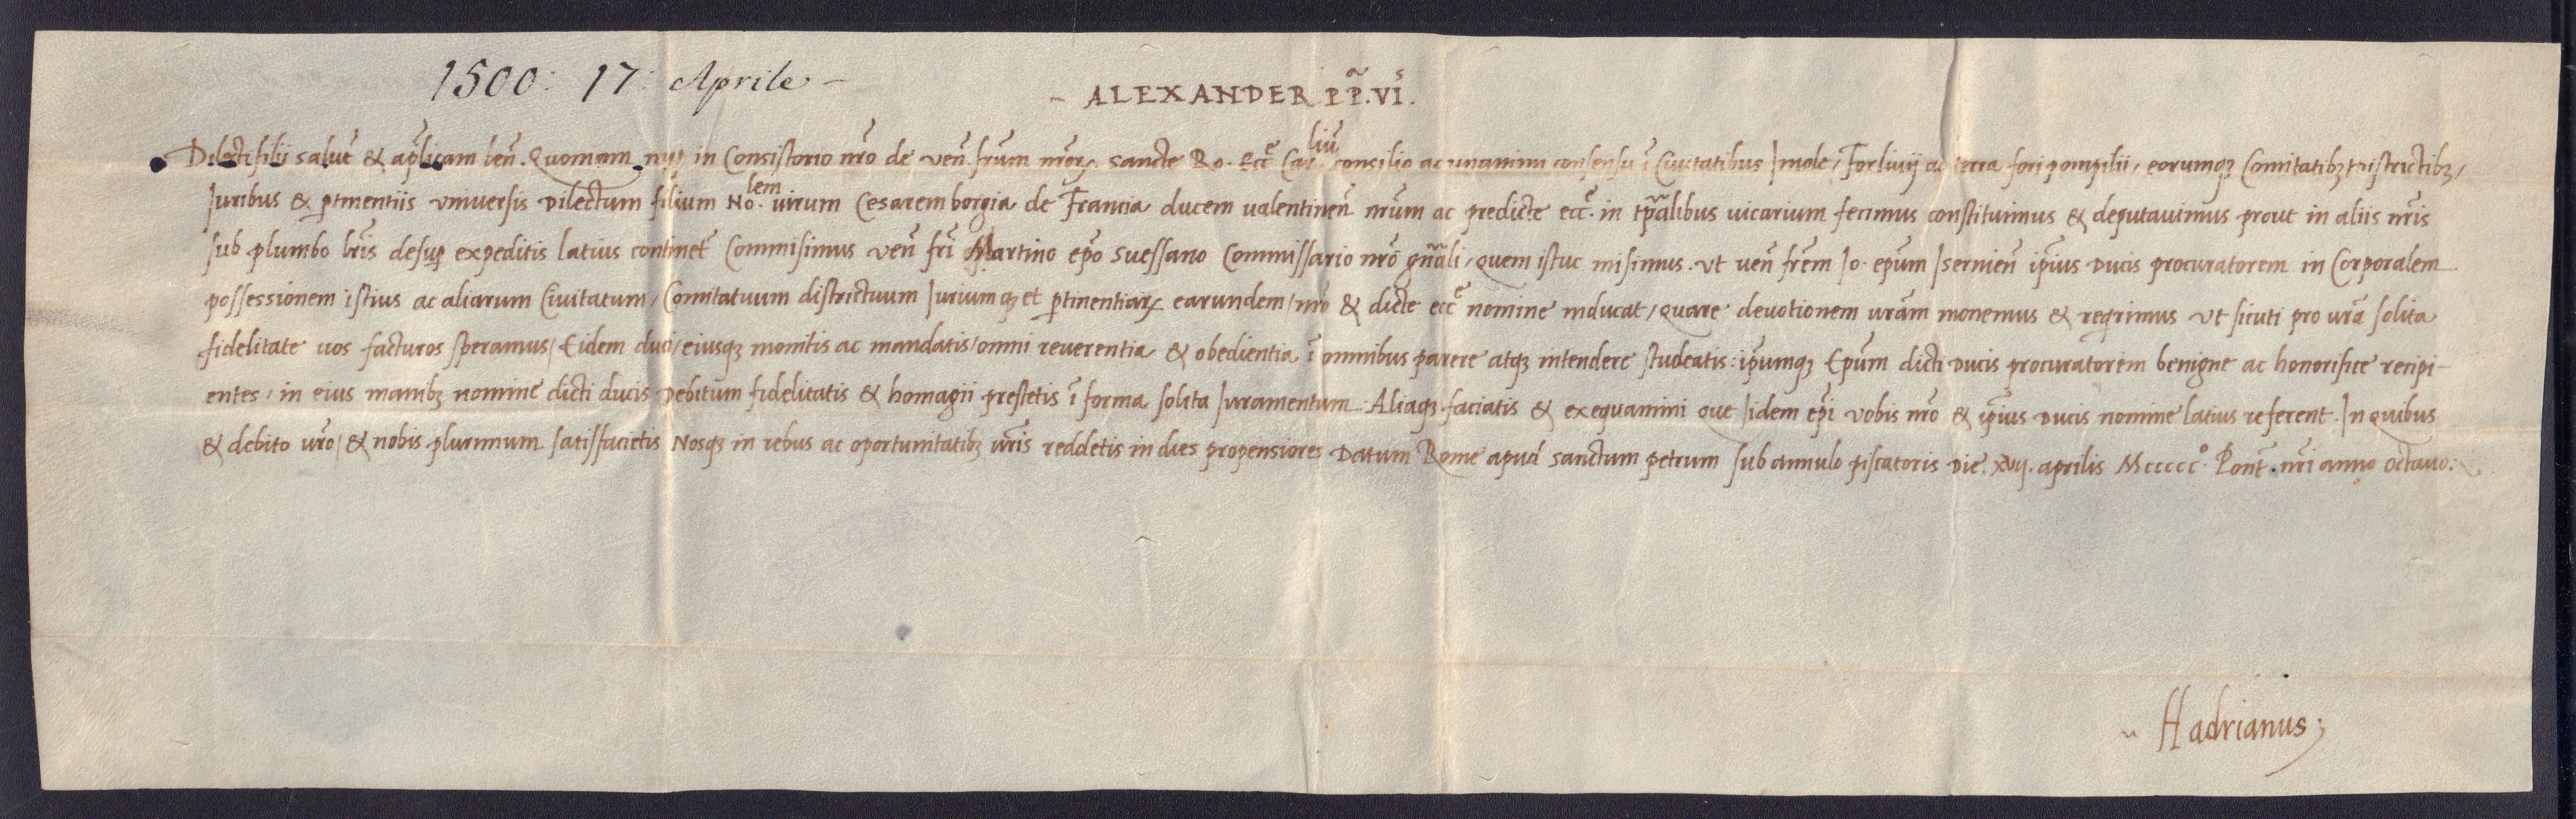 1500: 17: Aprile -
- ALEXANDER PP̃. VI^s.
Dilecti filii salut̃ & ap̃licam ben̄. Quoniam nup̱ in Consistorio nr̃o de ven̄. frũm nr̃or̃ sancte Ro. Ecc̃e Car^liũ consilio ac unanimi consensu ĩ Civitatibus Imole, Forlivij ac terra foripompilii, eorumqȝ Comitatibȝ Districtibȝ,
Iuribus & ptinentiis universis Dilectum filium No^lem. virum Cesarem borgia de Francia ducem valentinen̄ nr̃um ac predicte ecc̃e. in tp̃alibus vicarium fecimus constituimus & deputavimus prout in aliis nr̃is
sub plumbo lr̃is desup̱ expeditis latius continet̃ Commisimus ven̄ fr̃i Martino ep̃o Suessano Commissario nr̃o gn̄ali, quem istuc misimus. Ut ven̄ fr̃em Io. ep̃um Isernien̄ ip̃ius Ducis procuratorem in Corporalem
possessionem istius ac aliarum Civitatum, Comitatuum districtuum Iuriumqȝ et ptinentiar̃ earundem, nr̃o & dicte ecc̃e nomine inducat, quare devotionem vr̃am monemus & reqrimus Ut sicuti pro vr̃a solita
fidelitate vos facturos speramus, Eidem duci, eiusqȝ monitis ac mandatis, omni reverentia & obedientia ĩ omnibus parere atqȝ intendere studeatis: ip̃umqȝ Ep̃um dicti Ducis procuratorem benigne ac honorifice recipi-
entes, in eius manibȝ nomine dicti ducis Debitum fidelitatis & homagii prestetis ĩ forma solita Iuramentum. Aliaqȝ faciatis & exequamini que Iidem ep̃i vobis nr̃o & ip̃ius Ducis nomine latius referent. In quibus
& debito vr̃o, & nobis plurimum satisfacietis Nosqȝ in rebus ac oportunitatibȝ vr̃is reddetis in dies propensiores Datum Rome apud Sanctum petrum sub annulo piscatoris Die. xvij. aprilis Mccccc°. Pont̃. nr̃i anno octavo:
Hadrianus;